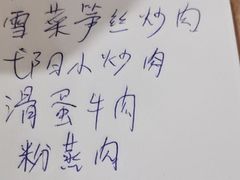 雪菜笋丝炒肉
邙日小炒肉
滑蛋牛肉
粉蒸肉